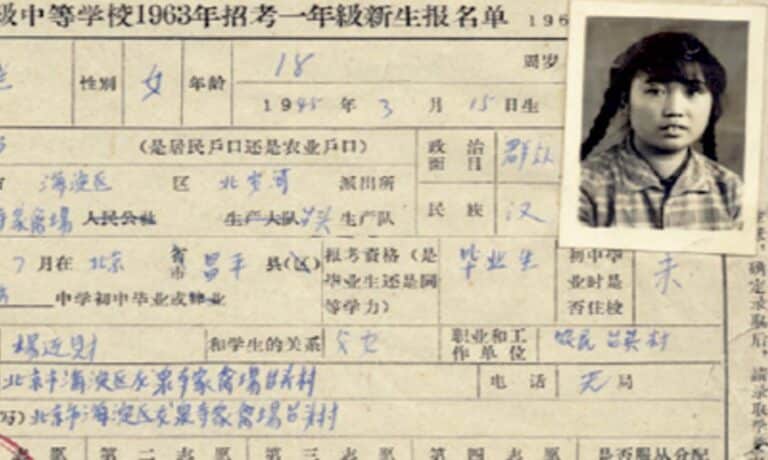 级中等学校1963年招考一年级新生报名单 196
性别 女 年龄 18 周岁
1945年3月15日生
(是居民户口还是农业户口) 政治面目 群众
海淀区 区 北安河 派出所
家禽場 人民公社 生产大队 台头 生产队 民族 汉
7月在 北京 省市 昌平 县(区) 报考资格(是毕业生还是同等学力) 毕业生 初中毕业时是否住校 未
中学初中毕业或肄业
楊近财 和学生的关系 父女 职业和工作单位 农民 台头村
北京市海淀区 家禽場台头村 电话 无 局
北京市海淀区 家禽場台头村
志愿 第二志愿 第三志愿 第四志愿 是否服从分配
确定录取后,请录取学